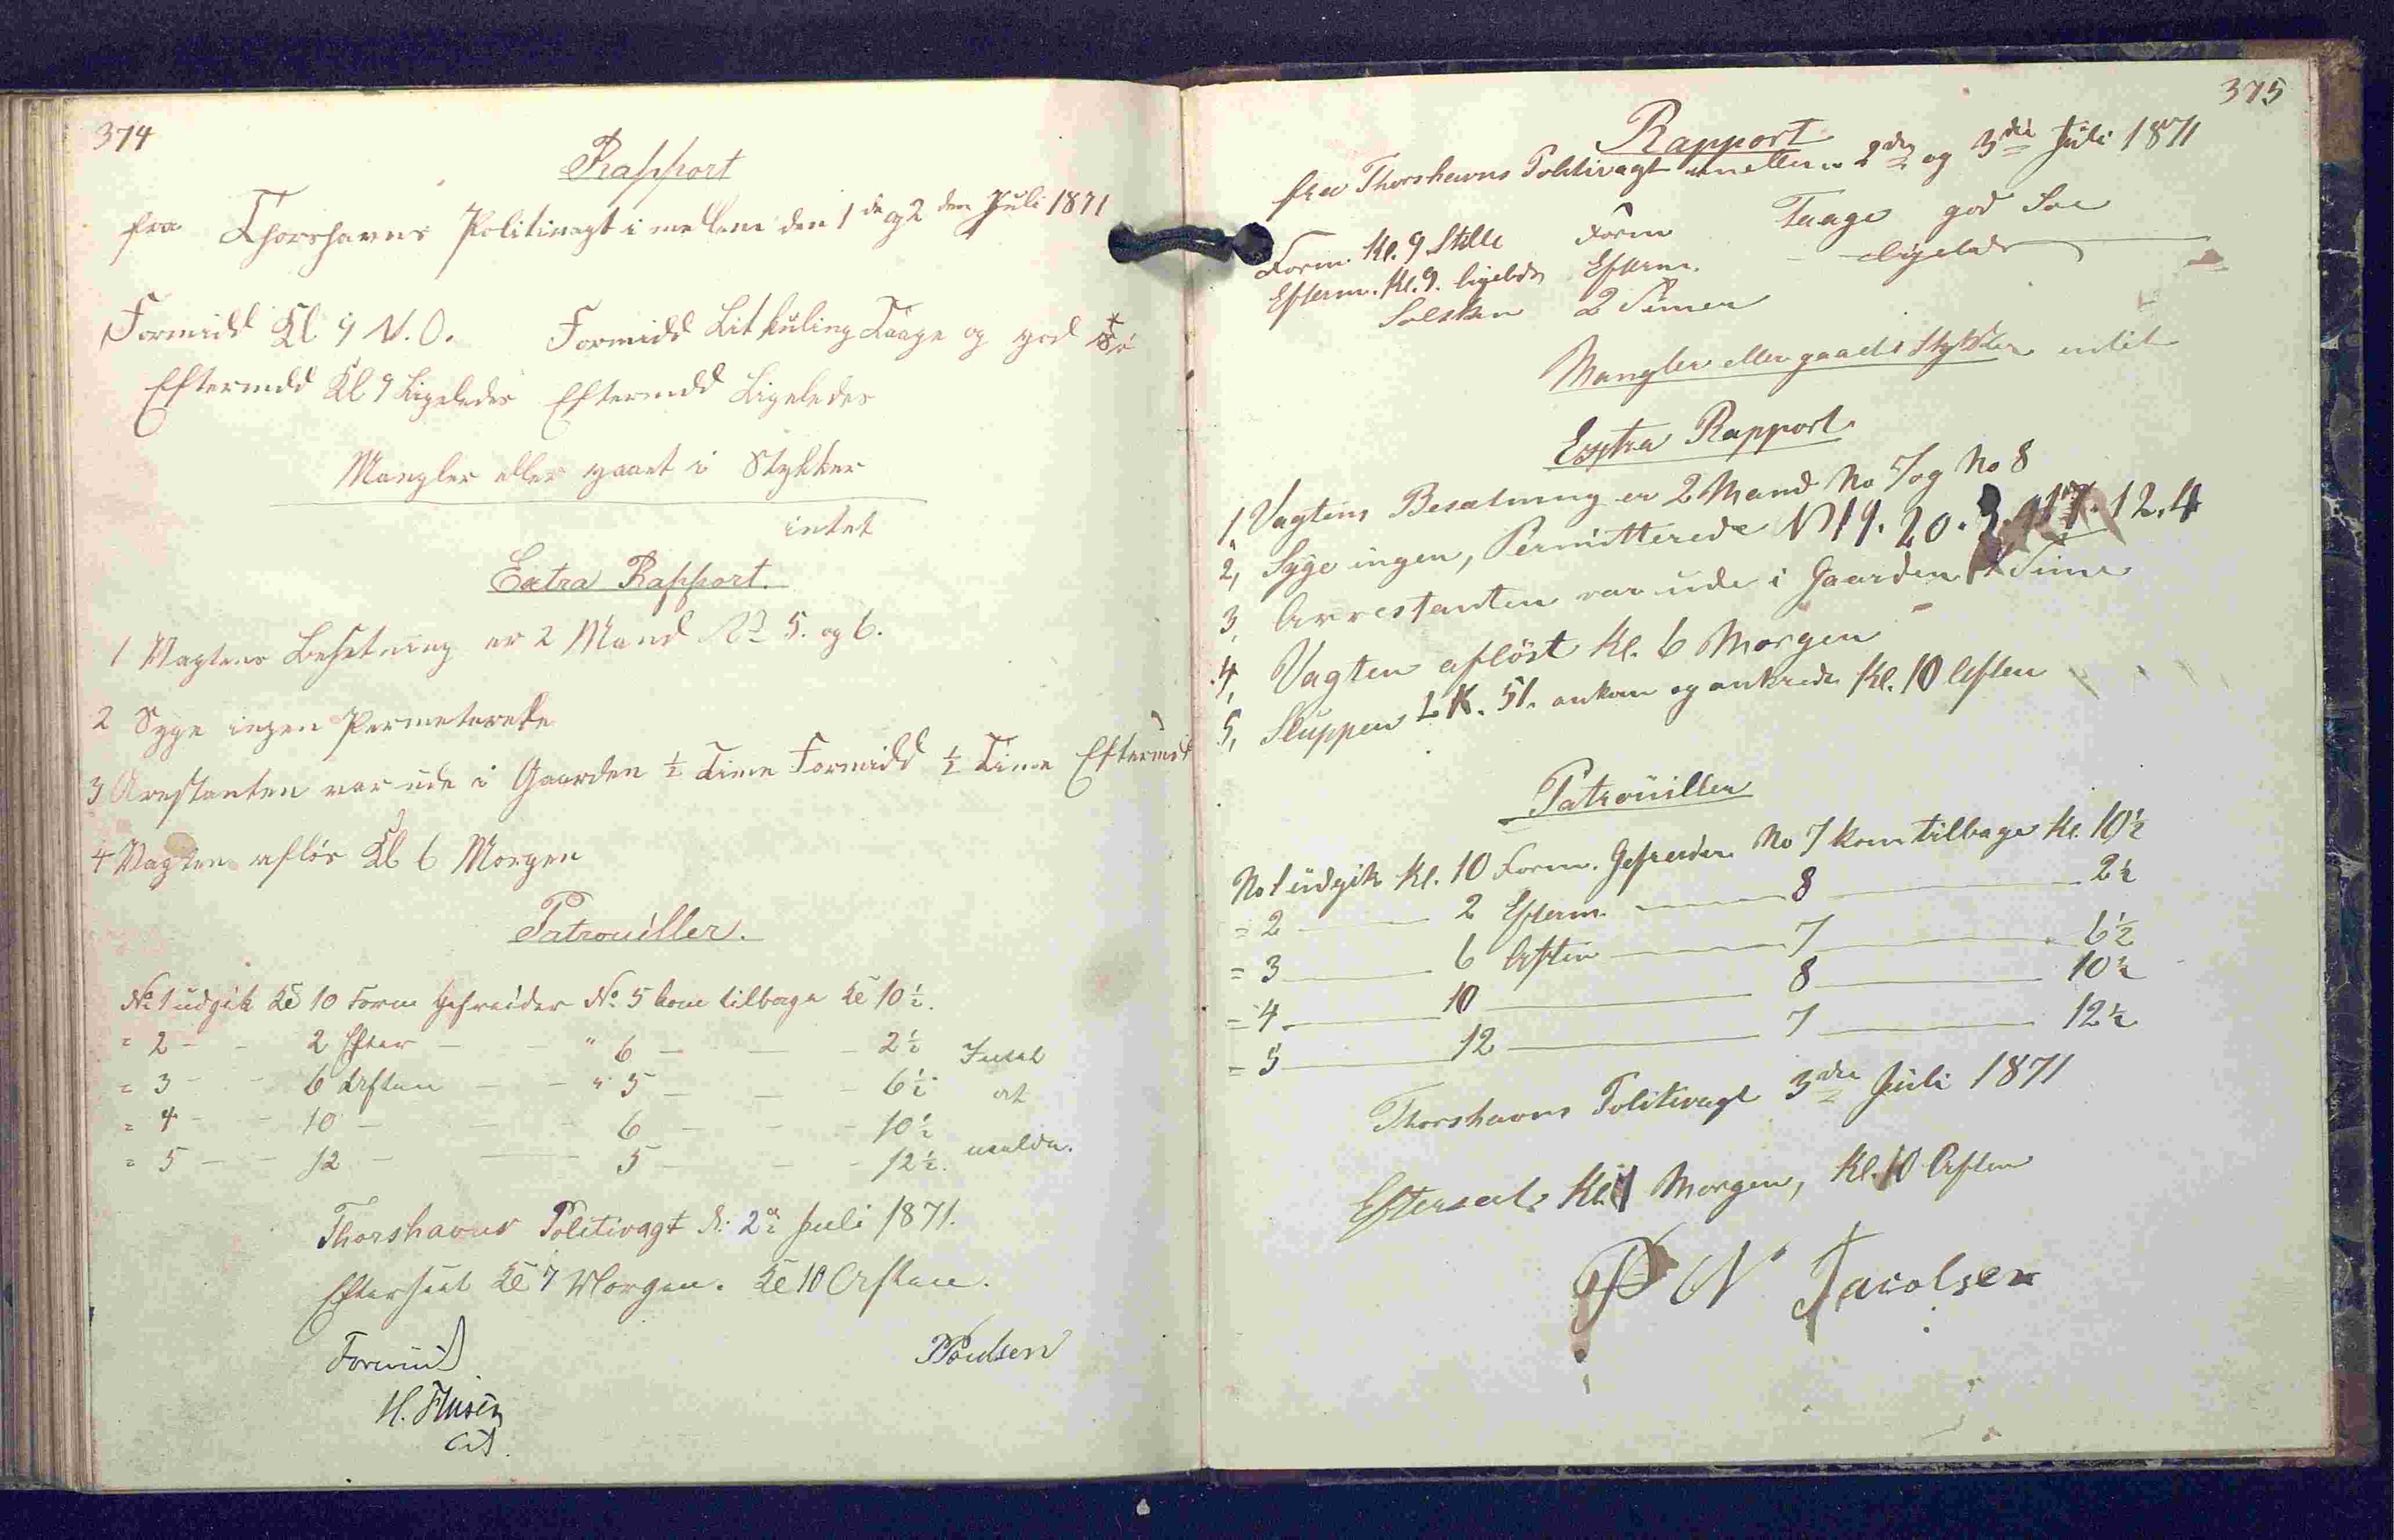 374
Rapport
fra Thorshavns Politivagt i mellem den 1de og 2den Juli 1871
Formidd Kl 9 N.O. Formidd Lit Kuling Taage og god
Eftermdd Kl 9 Ligeledes Eftermdd Ligeledes
Mangler eller gaaet i Stykker
intet
Extra Rapport.
1 Vagtens Besetning er 2 Mand No 5. og 6.
2 Syge ingen Permeterede
3 Arestanten var ude i Gaarden ½ Time Formidd ½ Time Eftermd
4 Vagten afløs Kl 6 Morgen
Patrouiller.
No 1 udgik Kl 10 Form Gefreider No 5 kom tilbage Kl 10½.
" 2 - - 2 Efter - - " 6 - - - 2½ Intet
" 3 - - 6 Aften - - " 5 - - - 6½ at
" 4 - - 10 - - - 6 - - - 10½
" 5 - - 12 - - - 5 - - - 12½. melde.
Thorshavns Politivagt d. 2d Juli 1871.
Efterseet Kl 7 Morgen. Kl 10 Aften.
Poulsen
375
Rapport
fra Thorshavns Politivagt imellem 2den og 3die Juli 1871
Form. Kl. 9 Stille Form Taage god Søe
Efterm. Kl. 9. ligeleds Efterm. - ligeleds
Solskin 2 Timer
Mangler eller gaaet i Stykker intet
Exstra Rapport
1, Vagtens Besætning er 2 Mand No 7 og No 8
2, Syge ingen, Permitterede No 19. 20. 12. 4
3, Arrestanten var ude i Gaarden Time
4, Vagten afløst Kl. 6 Morgen
5, Sluppen L K. 51. ankom og ankrede Kl. 10 Aften
Patrouiller
No 1 udgik Kl. 10 Form. Gefreider No 7 kom tilbage Kl. 10½
= 2 — 2 Efterm. — 8 — 2½
= 3 — 6 Aften — 7 — 6½
= 4 — 10 — 8 — 10½
= 5 — 12 — 7 — 12½
Thorshavns Politivagt 3die Juli 1871
Efterseet Kl. Morgen, Kl. 10 Aften
P N Jacobsen